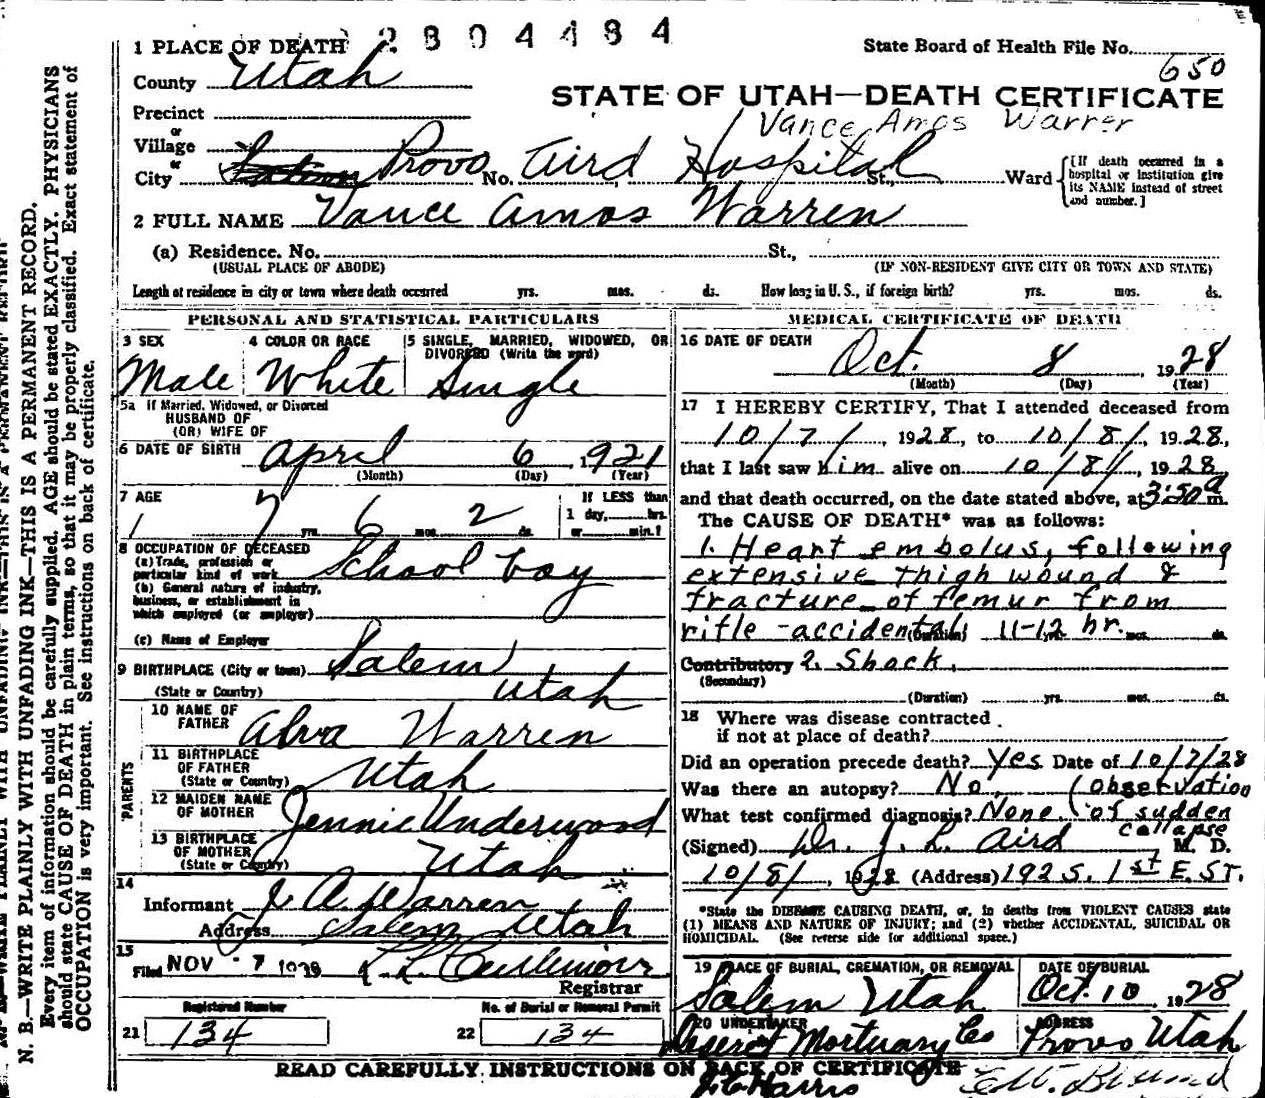 2804484
1 PLACE OF DEATH
State Board of Health File No. 650
County Utah
STATE OF UTAH—DEATH CERTIFICATE
Precinct
Vance Amos Warren
or
Village
or
City Provo No. Aird Hospital St., Ward
[If death occurred in a hospital or institution give its NAME instead of street and number.]
2 FULL NAME Vance Amos Warren
(a) Residence. No. St.,
(USUAL PLACE OF ABODE) (IF NON-RESIDENT GIVE CITY OR TOWN AND STATE)
Length of residence in city or town where death occurred yrs. mos. ds. How long in U. S., if foreign birth? yrs. mos. ds.
PERSONAL AND STATISTICAL PARTICULARS
3 SEX
Male
4 COLOR OR RACE
White
5 SINGLE, MARRIED, WIDOWED, OR DIVORCED (Write the word)
Single
5a If Married, Widowed, or Divorced
HUSBAND OF
(OR) WIFE OF
6 DATE OF BIRTH April 6, 1921
(Month) (Day) (Year)
7 AGE
7 yrs. 6 mos. 2 ds.
If LESS than
1 day, hrs.
or min.?
8 OCCUPATION OF DECEASED
(a) Trade, profession or
particular kind of work School boy
(b) General nature of industry,
business, or establishment in
which employed (or employer)
(c) Name of Employer
9 BIRTHPLACE (City or town) Salem
(State or Country) Utah
PARENTS
10 NAME OF
FATHER Alva Warren
11 BIRTHPLACE
OF FATHER
(State or Country) Utah
12 MAIDEN NAME
OF MOTHER Jennie Underwood
13 BIRTHPLACE
OF MOTHER
(State or Country) Utah
14
Informant J. A. Warren
Address Salem Utah
15
Filed NOV - 7 1928
Registrar
Registered Number
21 134
No. of Burial or Removal Permit
22 134
MEDICAL CERTIFICATE OF DEATH
16 DATE OF DEATH
Oct. 8, 1928
(Month) (Day) (Year)
17 I HEREBY CERTIFY, That I attended deceased from
10/7/, 1928, to 10/8/, 1928,
that I last saw him alive on 10/8/, 1928
and that death occurred, on the date stated above, at 3:50 a m.
The CAUSE OF DEATH* was as follows:
1. Heart embolus, following
extensive thigh wound &
fracture of femur from
rifle - accidental (Duration) 11-12 hr. mos. ds.
Contributory 2. Shock.
(Secondary)
(Duration) yrs. mos. ds.
18 Where was disease contracted
if not at place of death?
Did an operation precede death? Yes Date of 10/7/28
Was there an autopsy? No. (observation
What test confirmed diagnosis? None. of sudden
collapse
(Signed) Dr. J. L. Aird M. D.
10/8/, 1928 (Address) 192 S. 1st E. ST.
*State the DISEASE CAUSING DEATH, or, in deaths from VIOLENT CAUSES state
(1) MEANS AND NATURE OF INJURY; and (2) whether ACCIDENTAL, SUICIDAL OR
HOMICIDAL. (See reverse side for additional space.)
19 PLACE OF BURIAL, CREMATION, OR REMOVAL
Salem Utah
DATE OF BURIAL
Oct. 10, 1928
20 UNDERTAKER
Deseret Mortuary Co
ADDRESS
Provo Utah
READ CAREFULLY INSTRUCTIONS ON BACK OF CERTIFICATE
Harris
N. B.—WRITE PLAINLY WITH UNFADING INK—THIS IS A PERMANENT RECORD.
Every item of information should be carefully supplied. AGE should be stated EXACTLY. PHYSICIANS
should state CAUSE OF DEATH in plain terms, so that it may be properly classified. Exact statement of
OCCUPATION is very important. See instructions on back of certificate.